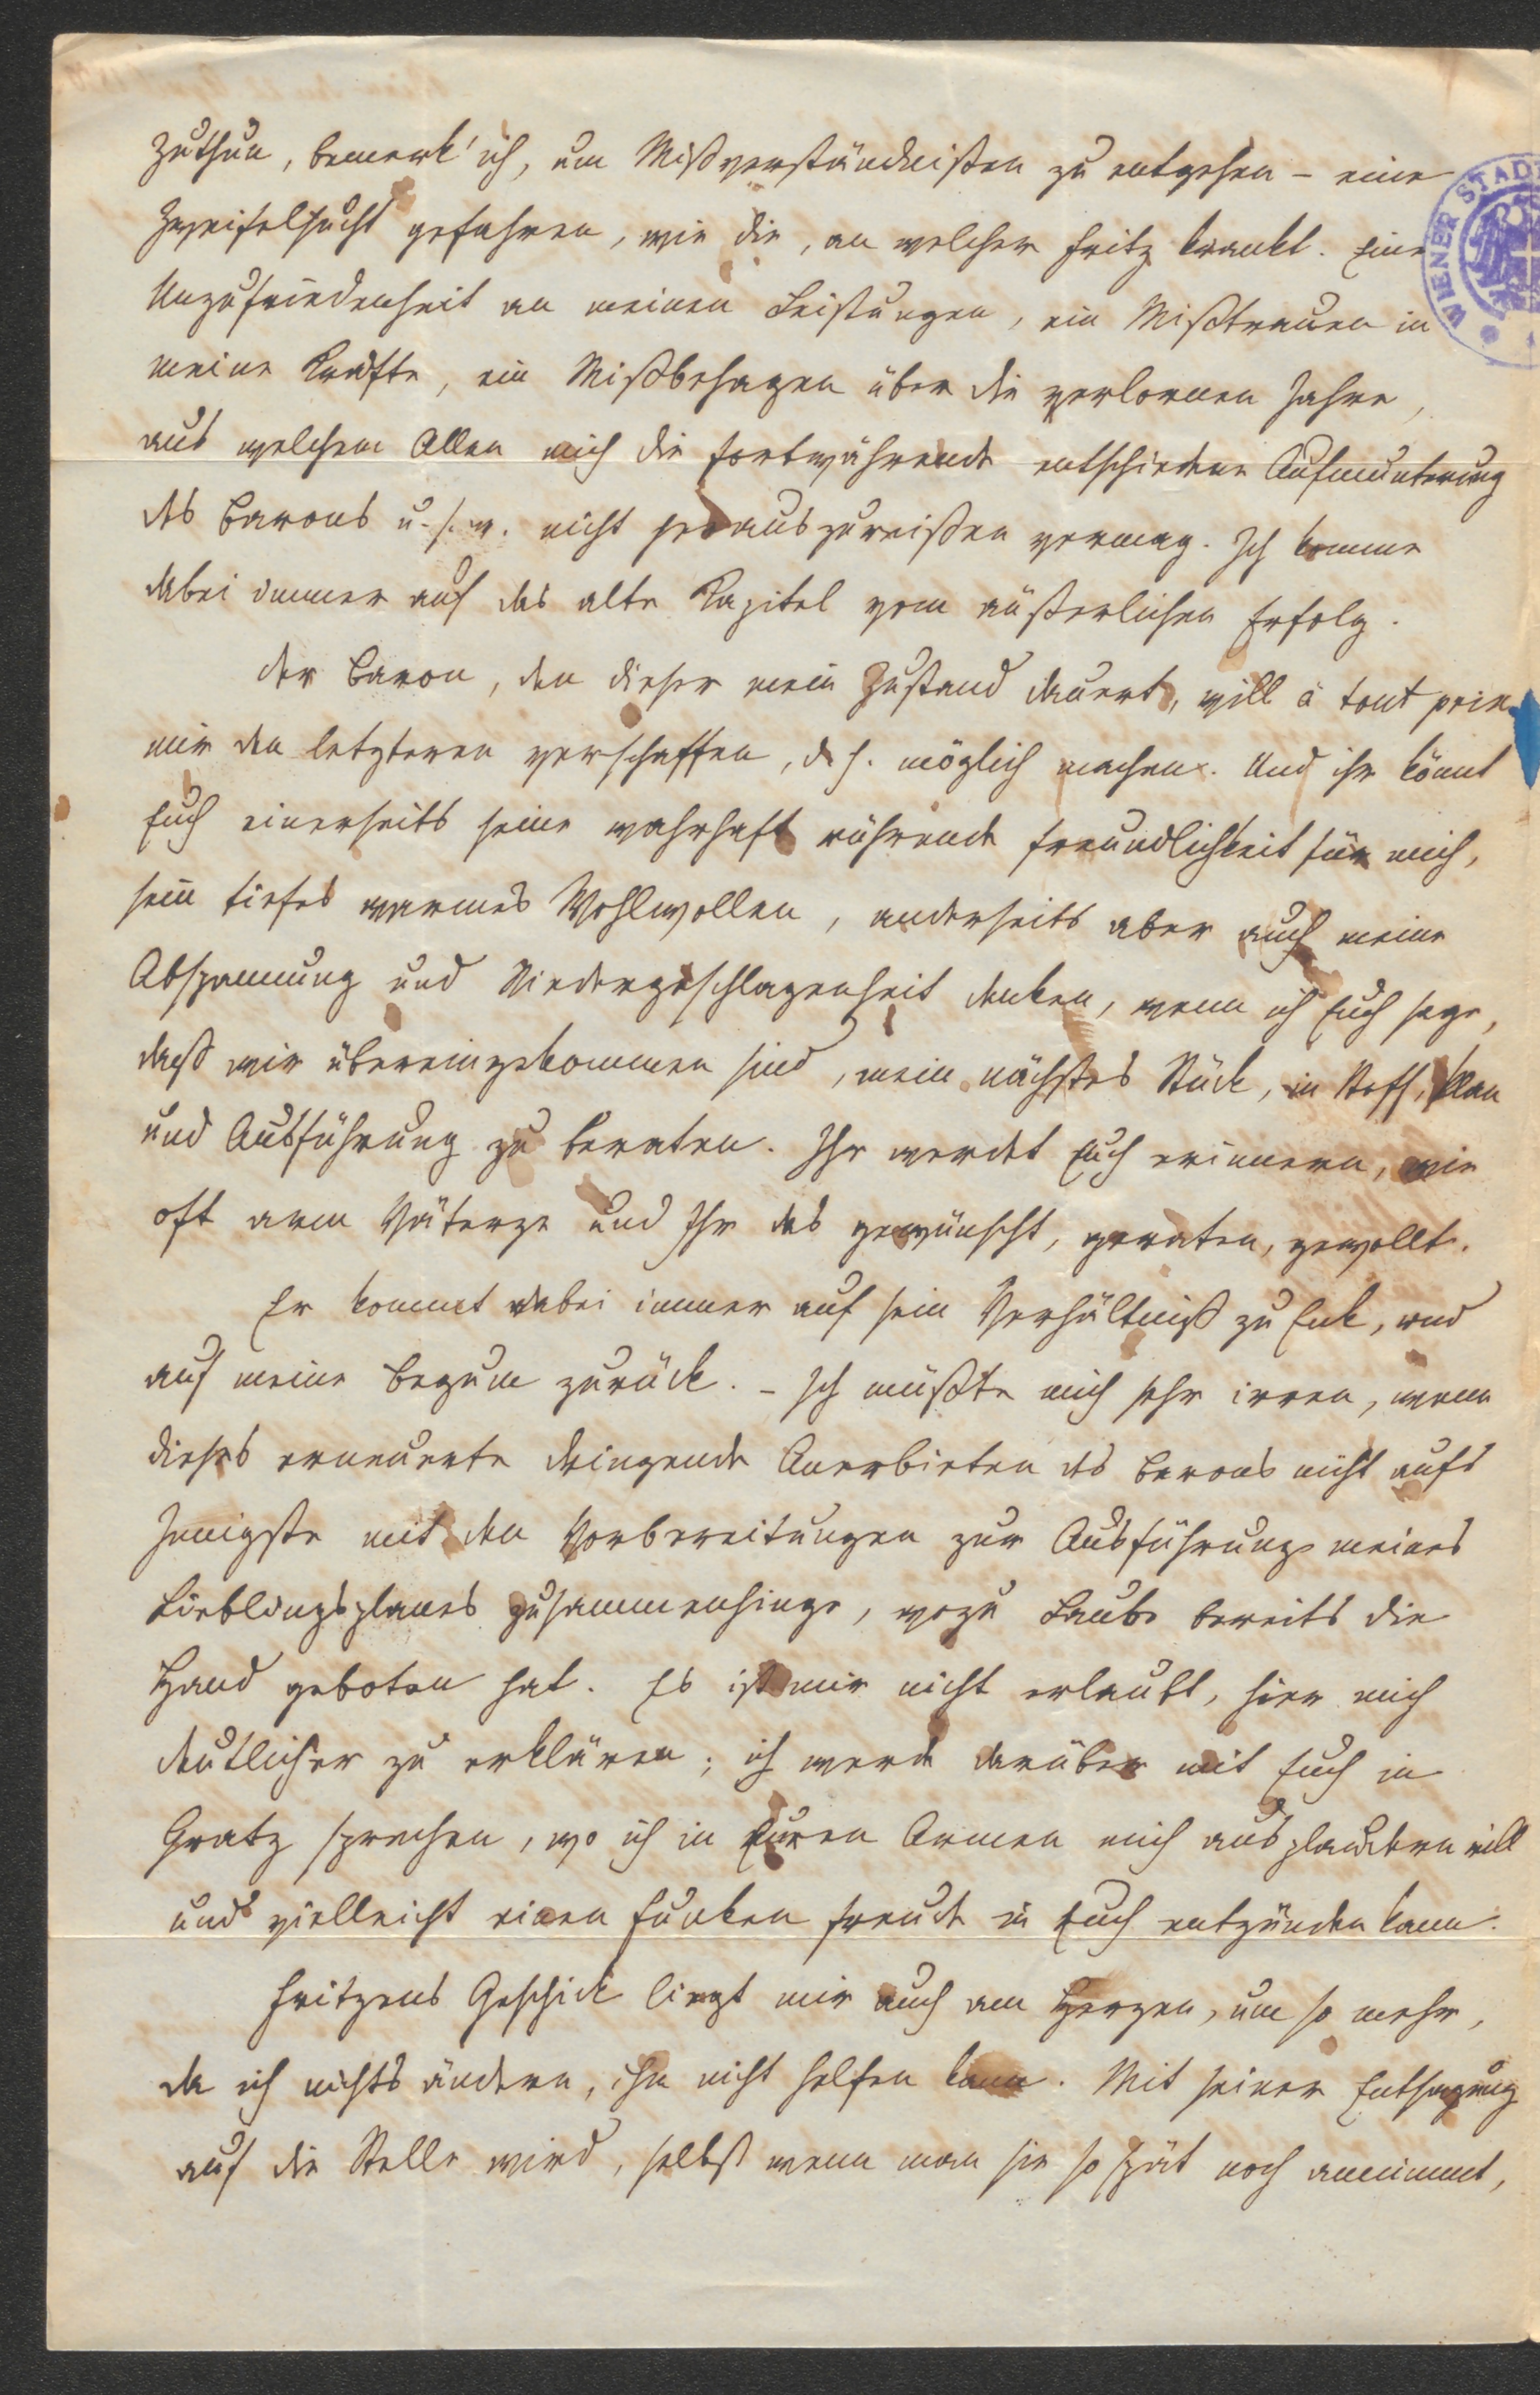 Zuthun, bemerk' ich, um Mißverständnißen zu entgehen – eine
Zweifelsucht gefahren, wie die, an welcher Fritz krankt. Eine
Unzufriedenheit an meinen Leistungen, ein Mißtrauen in
meine Kräfte, ein Mißbehagen über die verlornen Jahre,
aus welchem Allen mich die fortwährende entschiedene Aufmunterung
des Barons u. s. w. nicht herauszureißen vermag. Ich komme
dabei immer auf das alte Kapitel vom äußerlichen Erfolg.
Der Baron, den dieser mein Zustand dauert, will à tout prix
mir den letzteren verschaffen, d. h. möglich machen. Und ihr könnt
Euch einerseits seine wahrhaft rührende Freundlichkeit für mich,
sein tiefes warmes Wohlwollen, anderseits aber auch meine
Abspannung und Niedergeschlagenheit denken, wenn ich Euch sage,
daß wir übereingekommen sind, mein nächstes Stück, in Stoff, Plan
und Ausführung zu beraten. Ihr werdet Euch erinnern, wie
oft arm Väterge und Ihr das gewünscht, geraten, gewollt.
Er kommt dabei immer auf sein Verhältniß zu Enk, und
auf meine Begum zurück. – Ich müßte mich sehr irren, wenn
dieses erneuerte dringende Anerbieten des Barons nicht aufs
Innigste mit den Vorbereitungen zur Ausführung meines
Lieblingsplanes zusammenhinge, wozu Laube bereits die
Hand geboten hat. Es ist mir nicht erlaubt, hier mich
deutlicher zu erklären; ich werde darüber mit Euch in
Gratz sprechen, wo ich in Euren Armen mich ausplaudern will
und vielleicht einen Funken Freude in Euch entzünden kann.
Fritzens Geschick liegt mir auch am Herzen, um so mehr,
da ich nichts ändern, ihm nicht helfen kann. Mit seiner Entsagung
auf die Stelle wird, selbst wenn man sie so spät noch annimmt,
WIENER STAD